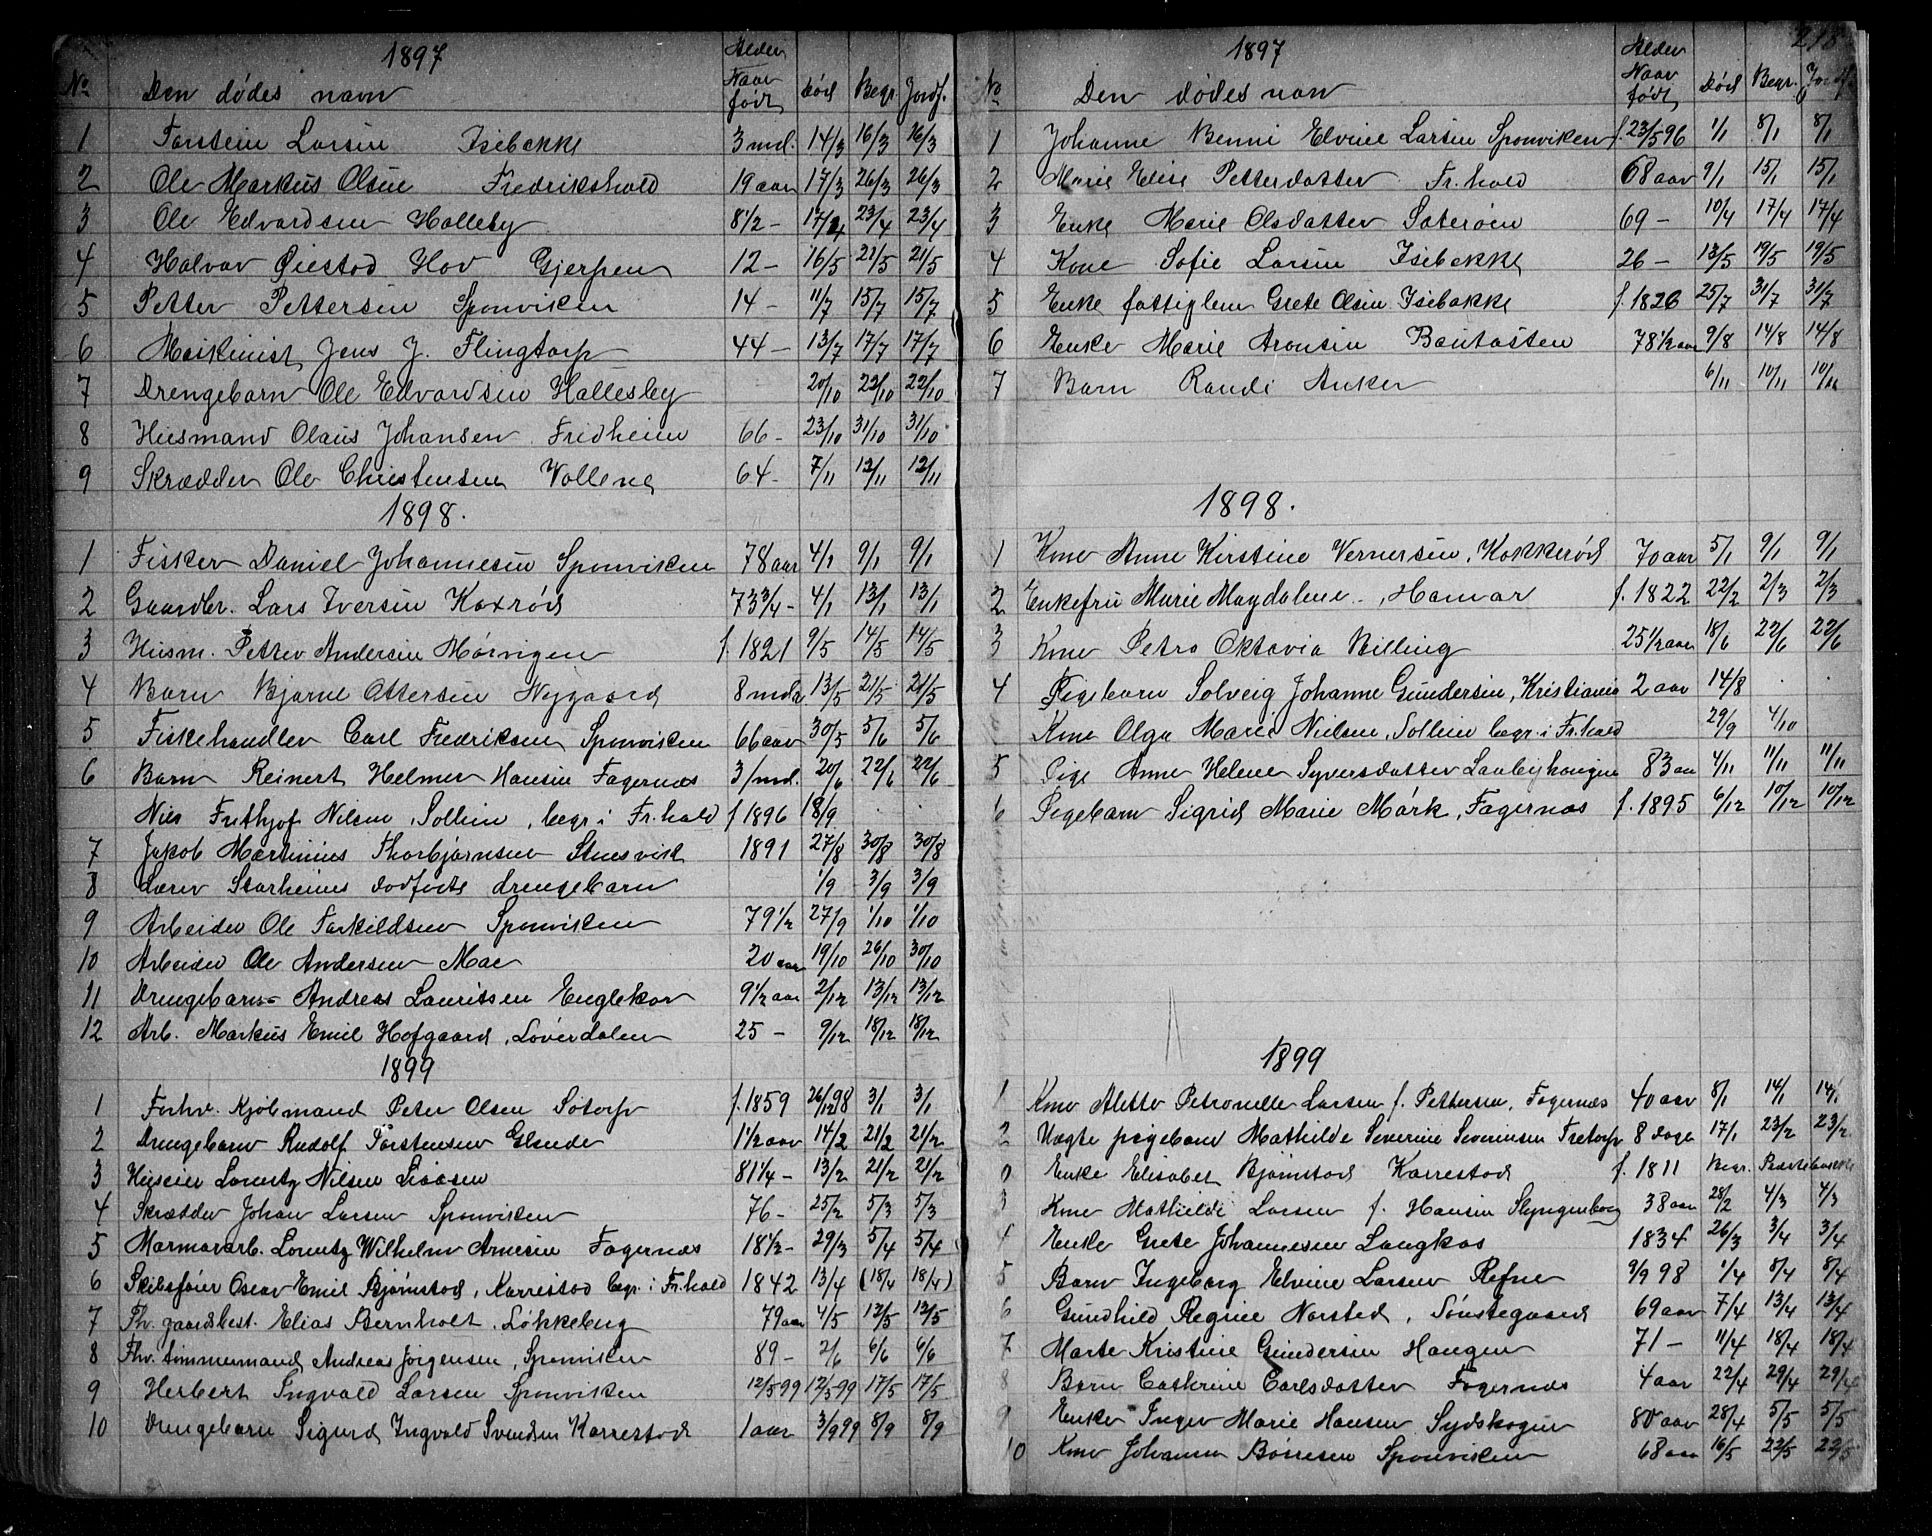 1897
No Den dødes navn Alder Naar født Død Begr. Jordf.
1 Torstein Larsen Isebakke 3 md. 14/3 16/3 26/3
2 Ole Markus Olsen Fredrikshald 19 aar 17/3 26/3 26/3
3 Ole Edvardsen Holleby 8 1/2 - 17/4 23/4 23/4
4 Halvor Øiestad Hov Gjerpen 12 - 16/5 21/5 21/5
5 Petter Pettersen Sponviken 14 - 11/7 15/7 15/7
6 Maskinist Jens J. Flingtorp 44 - 13/7 17/7 17/7
7 Drengebarn Ole Edvardsen Hallesby 20/10 22/10 22/10
8 Husmand Olaus Johansen Fridheim 66 - 23/10 31/10 31/10
9 Skrædder Ole Christensen Vollene 64 - 7/11 12/11 12/11
1898.
1 Fisker Daniel Johannesen Sponviken 78 aar 4/1 9/1 9/1
2 Gaardbr. Lars Iversen Koxrød 73 3/4 - 4/1 13/1 13/1
3 Husm. Petter Andersen Mørvigen f. 1821 9/5 14/5 14/5
4 Barn Bjarne Ottersen Nygaard 8 mdr 13/5 21/5 21/5
5 Fiskehandler Carl Fredriksen Sponviken 66 aar 30/5 5/6 5/6
6 Barn Reinert Helmer Hansen Fagernæs 3/md. 20/6 22/6 22/6
Nils Frithjof Nilsen, Sollien, begr. i Fr.hald f 1896 18/9
7 Jakob Martinius Thorbjørnsen Stensvik 1891 27/8 30/8 30/8
8 Lærer Starheims dødfødte drengebarn 1/9 3/9 3/9
9 Arbeider Ole Torkildsen Sponviken 79 1/2 27/9 1/10 1/10
10 Arbeider Ole Andersen Moe 20 aar 19/10 26/10 30/10
11 Drengebarn Andreas Lauritsen Englekor 9 1/2 aar 2/12 13/12 13/12
12 Arb. Markus Emil Hofgaard, Løverdalen 25 - 9/12 18/12 18/12
1899
1 Forhv. Kjøbmand Peter Olsen Sotorp f. 1859 26/12 98 3/1 3/1
2 Drengebarn Rudolf Torstensen Elende 1 1/2 aar 14/2 21/2 21/2
3 Huseier Lorentz Nilsen Liaasen 81 1/4 - 13/2 21/2 21/2
4 Skrædder Johan Larsen Sponviken 76 - 25/2 5/3 5/3
5 Marmorarb. Lorentz Wilhelm Arnesen Fagernæs 18 1/2 - 29/3 5/4 5/4
6 Skibsfører Oscar Emil Bjørnstad, Karrestad begr. i Fr.hald 1842 13/4 (18/4 18/4)
7 Fhv. gaardbest. Elias Bernholt, Løkkeberg 79 aar 4/5 12/5 12/5
8 Fhv. tømmermand Andreas Jørgensen, Sponviken 89 - 2/6 6/6 6/6
9 Herbert Ingvald Larsen Sponviken 12/5 99 12/5 99 17/5 17/5
10 Drengebarn Sigurd Ingvald Svendsen Karrestad 1 aar 3/9 99 8/9 8/9
218
1897
No Den dødes navn Alder Naar født Død Begr. Jordf.
1 Johanne Benni Elvine Larsen Sponviken f. 23/5 96 1/1 8/1 8/1
2 Marie Elise Petterdatter Fr.hald 68 aar 9/1 15/1 15/1
3 Enke Marie Olsdatter Saterøen 69 - 10/4 17/4 17/4
4 Kone Sofie Larsen Isebakke 26 - 13/5 19/5 19/5
5 Enke fattiglem Grete Olsen Isebakke f. 1826 25/7 31/7 31/7
6 Enke Marie Aronsen Bautasten 78 1/2 aar 9/8 14/8 14/8
7 Barn Randi Anker 6/11 10/11 10/11
1898.
1 Kone Anne Kirstine Vernersen, Kokkerød 70 aar 5/1 9/1 9/1
2 Enkefru Marie Magdalene , Hamar f. 1822 22/2 2/3 2/3
3 Kone Petra Oktavia Billing 25 1/2 aar 18/6 22/6 22/6
4 Pigebarn Solveig Johanne Gundersen, Kristiania 2 aar 14/8
Kone Olga Marie Nielsen, Sollien begr. i Fr.hald 29/9 4/10
5 Pige Anne Helene Syversdatter Laabyhaugen 83 aar 4/11 11/11 11/11
6 Pigebarn Sigrid Marie Mørk, Fagernæs f. 1895 6/12 10/12 10/12
1899
1 Kone Alette Petronelle Larsen f. Pettersen, Fagernæs 40 aar 8/1 14/1 14/1
2 Uægte pigebarn Mathilde Severine Severinsen Fretorp 8 dage 17/1 23/2 23/2
0 Enke Elisabet Bjørnstad Karrestad f. 1811 Begr.
3 Kone Mathilde Larsen f. Hansen Slyngenborg 38 aar 28/2 4/3 4/3
4 Enke Grete Johannesen Langkas 1834 26/3 3/4 3/4
5 Barn Ingeborg Elvine Larsen Refne 9/9 98 1/4 8/4 8/4
6 Gundhild Regine Norsted, Tønstegaard 69 aar 7/4 13/4 13/4
7 Marte Kristine Gundersen Haugen 71 - 11/4 18/4 18/4
8 Barn Cathrine Carlsdatter Fagernæs 4 aar 22/4 29/4 29/4
9 Enke Inger Marie Hansen Sydskogen 80 aar 28/4 5/5 5/5
10 Kone Johanna Børresen Sponviken 68 aar 16/5 22/5 22/5